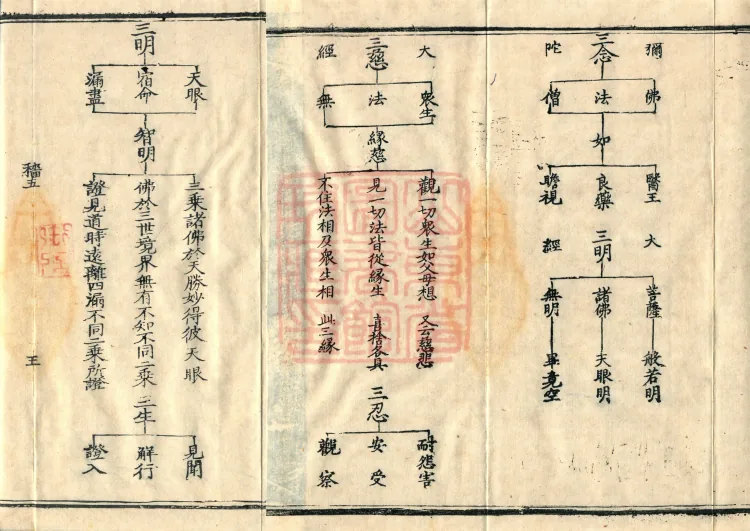 彌陀
三念
佛 法 僧
如
醫王 良藥 瞻視
大經
三明
菩薩 諸佛 無明
般若明 天眼明 畢竟空
大經
三慈
衆生 法 無
緣慈
觀一切衆生如父母想 又云慈悲
見一切法皆從緣生 喜捨各具
不住法相及衆生相 此三緣
三忍
耐怨害 安受 觀察
三明
天眼 宿命 漏盡
智明
三乘諸佛於天勝妙得彼天眼
佛於三世境界無有不知不同二乘
證見道時遠離四漏不同二乘所證
三生
見聞 解行 證入
五